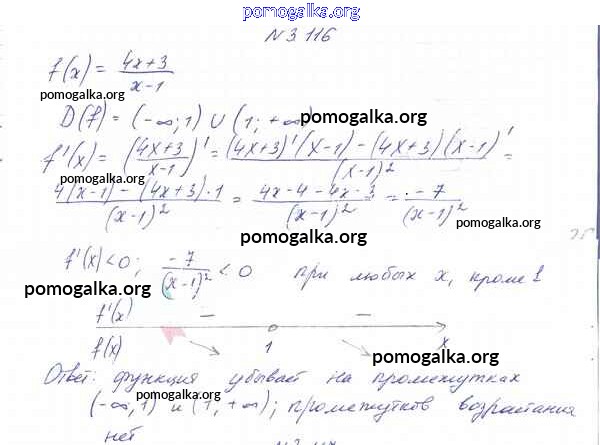 pomogalka.org
N 3.116
f(x) = (4x+3)/(x-1)
pomogalka.org
D(f) = (-∞; 1) ∪ (1; +∞)
pomogalka.org
f'(x) = ((4x+3)/(x-1))' = ((4x+3)'(x-1) - (4x+3)(x-1)')/(x-1)² =
pomogalka.org
(4(x-1) - (4x+3)·1)/(x-1)² = (4x-4-4x-3)/(x-1)² = -7/(x-1)²
pomogalka.org
pomogalka.org
f'(x)<0; -7/(x-1)² < 0 при любых x, кроме 1
pomogalka.org
f'(x) − −
f(x) 1 x
pomogalka.org
Ответ: функция убывает на промежутках
pomogalka.org
(-∞; 1) и (1; +∞); промежутков возрастания
нет